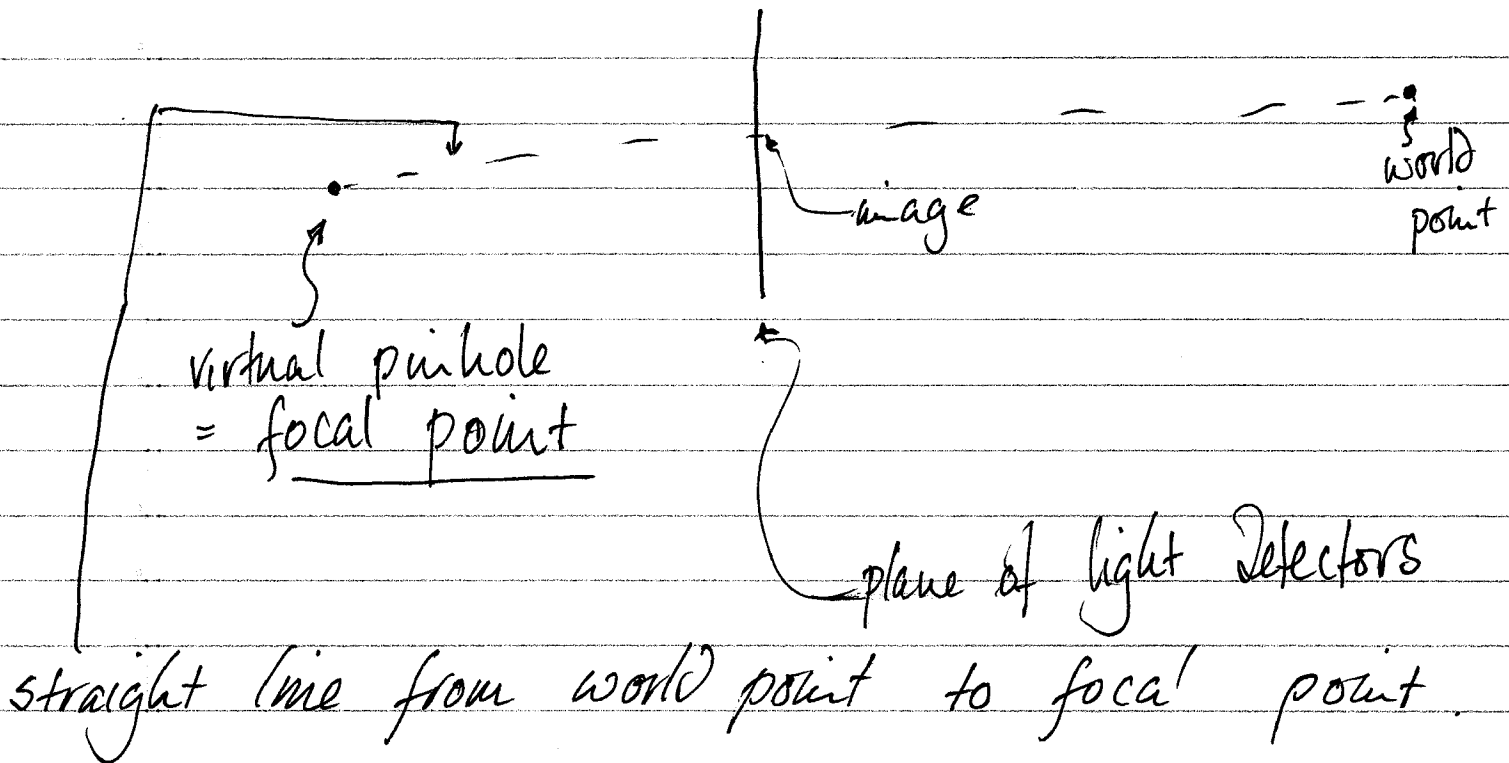 world
point
image
virtual pinhole
= focal point
plane of light Detectors
straight line from world point to focal point.